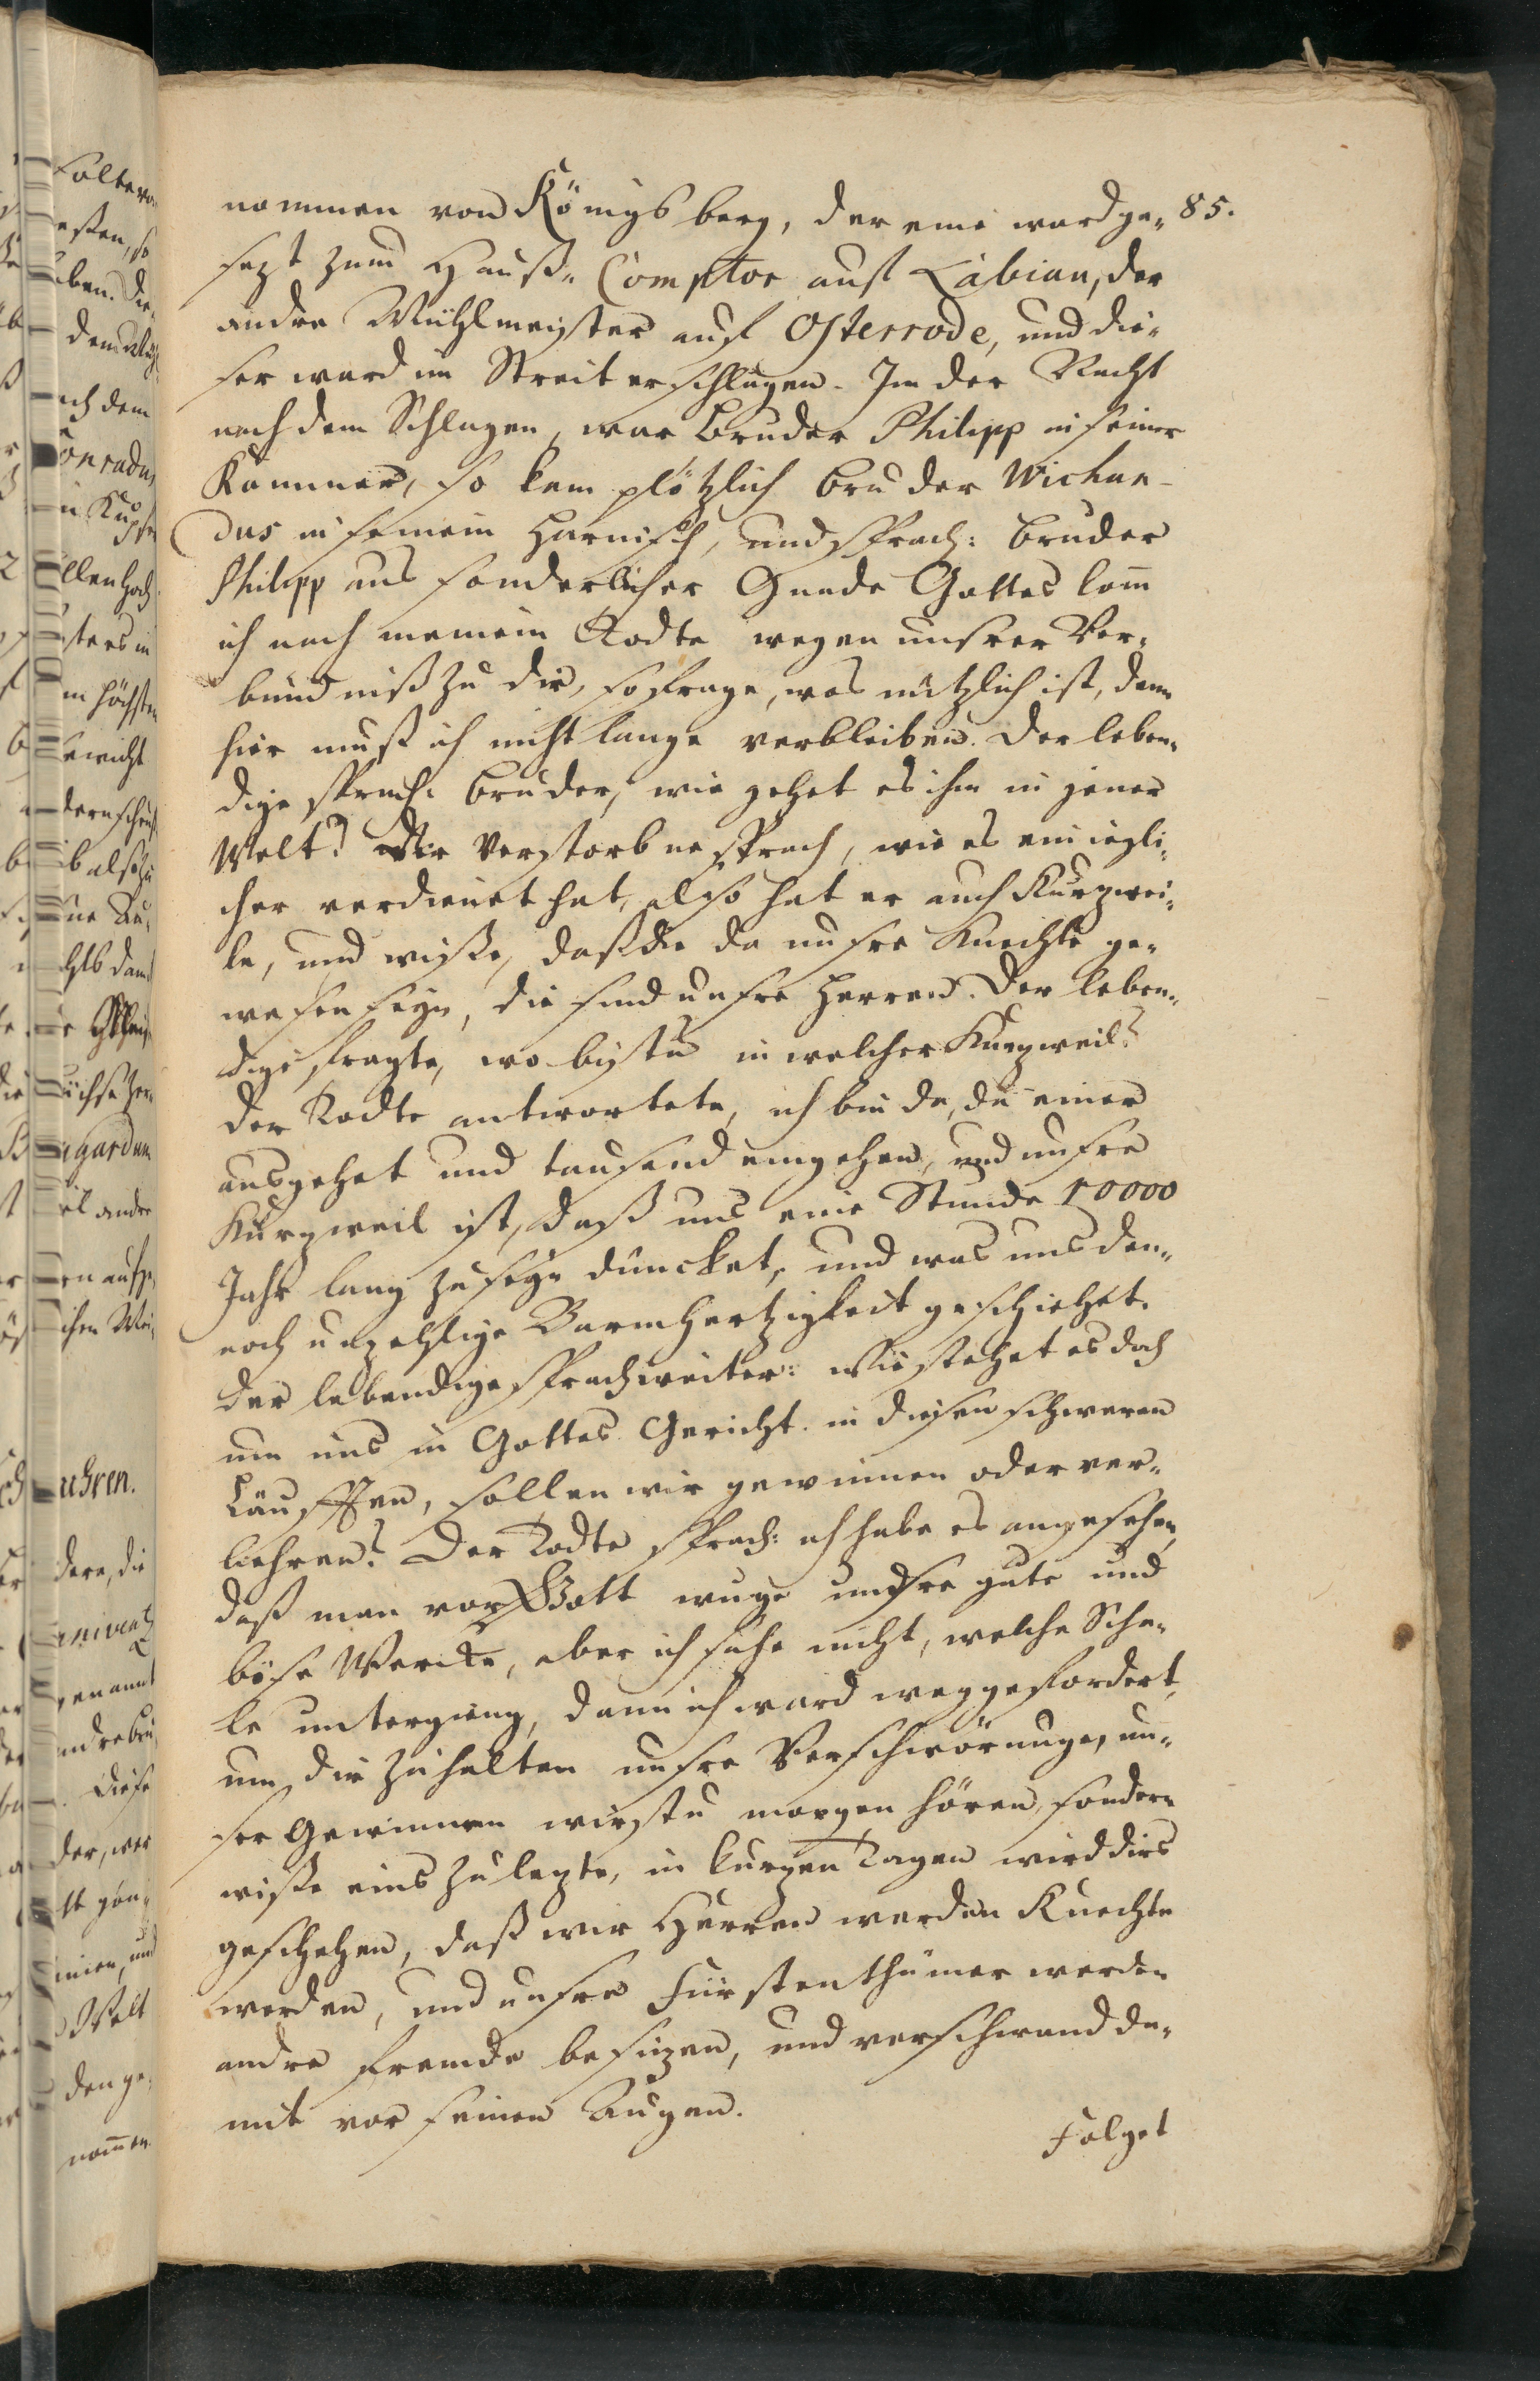 85.
nommen von Königsberg, der eine ward ge-
sezt zum Hauß-Comptor auf Labiau, der
andre Mühlmeister auf Osterrode, und die-
ser ward im Streit erschlagen. In der Nacht
nach dem Schlagen, war Bruder Philipp in seiner
Kammer, so kam plötzlich Bruder Wichan-
dus in seinem Harnisch, und sprach: Bruder
Philipp aus sonderlicher Gnade Gottes kom̄
ich nach meinem Todte wegen unsrer Ver-
bündniß zu dir, so frage, was nützlich ist, denn
hier muß ich nicht lange verbleiben. Der leben-
dige sprach: Bruder, wie gehet es ihm in jener
Welt? Der Verstorbne sprach, wie es ein iegli-
cher verdienet hat, also hat er auch Kurzwei-
le, und wiße, daß die da unsre Knechte ge-
wesen seyn, die sind unsre Herren. Der leben-
dige fragte, wo bistu in welcher Kurzweil?
Der Todte antwortete, ich bin da, da einer
ausgehet und tausend eingehen, und unsre
Kurzweil ist, daß uns eine Stunde 10000
Jahr lang zu seyn düncket, und was uns den-
noch unzehlige Barmhertzigkeit geschiehet.
Der lebendige sprach weiter: wie stehet es doch
um uns in Gottes Gericht in diesen schweren
Läufften, sollen wir gewinnen oder ver-
liehren? Der Todte sprach: ich habe es angesehen,
daß man vor Gott wuge unsre gute und
böse Wercke, aber ich sahe nicht, welche Scha-
le untergieng, dann ich ward weggefordert,
um dir zuhalten unsre Verschwörunge, un-
ser Gewinnen wirstu morgen hören, sondern
wiße eins zulezte, in kurzen Tagen wird dirs
geschehen, daß wir Herren werden Knechte
werden, und unsre Fürstenthümer werden
andre Fremde besizen, und verschwand da-
mit vor seinen Augen.
Folget